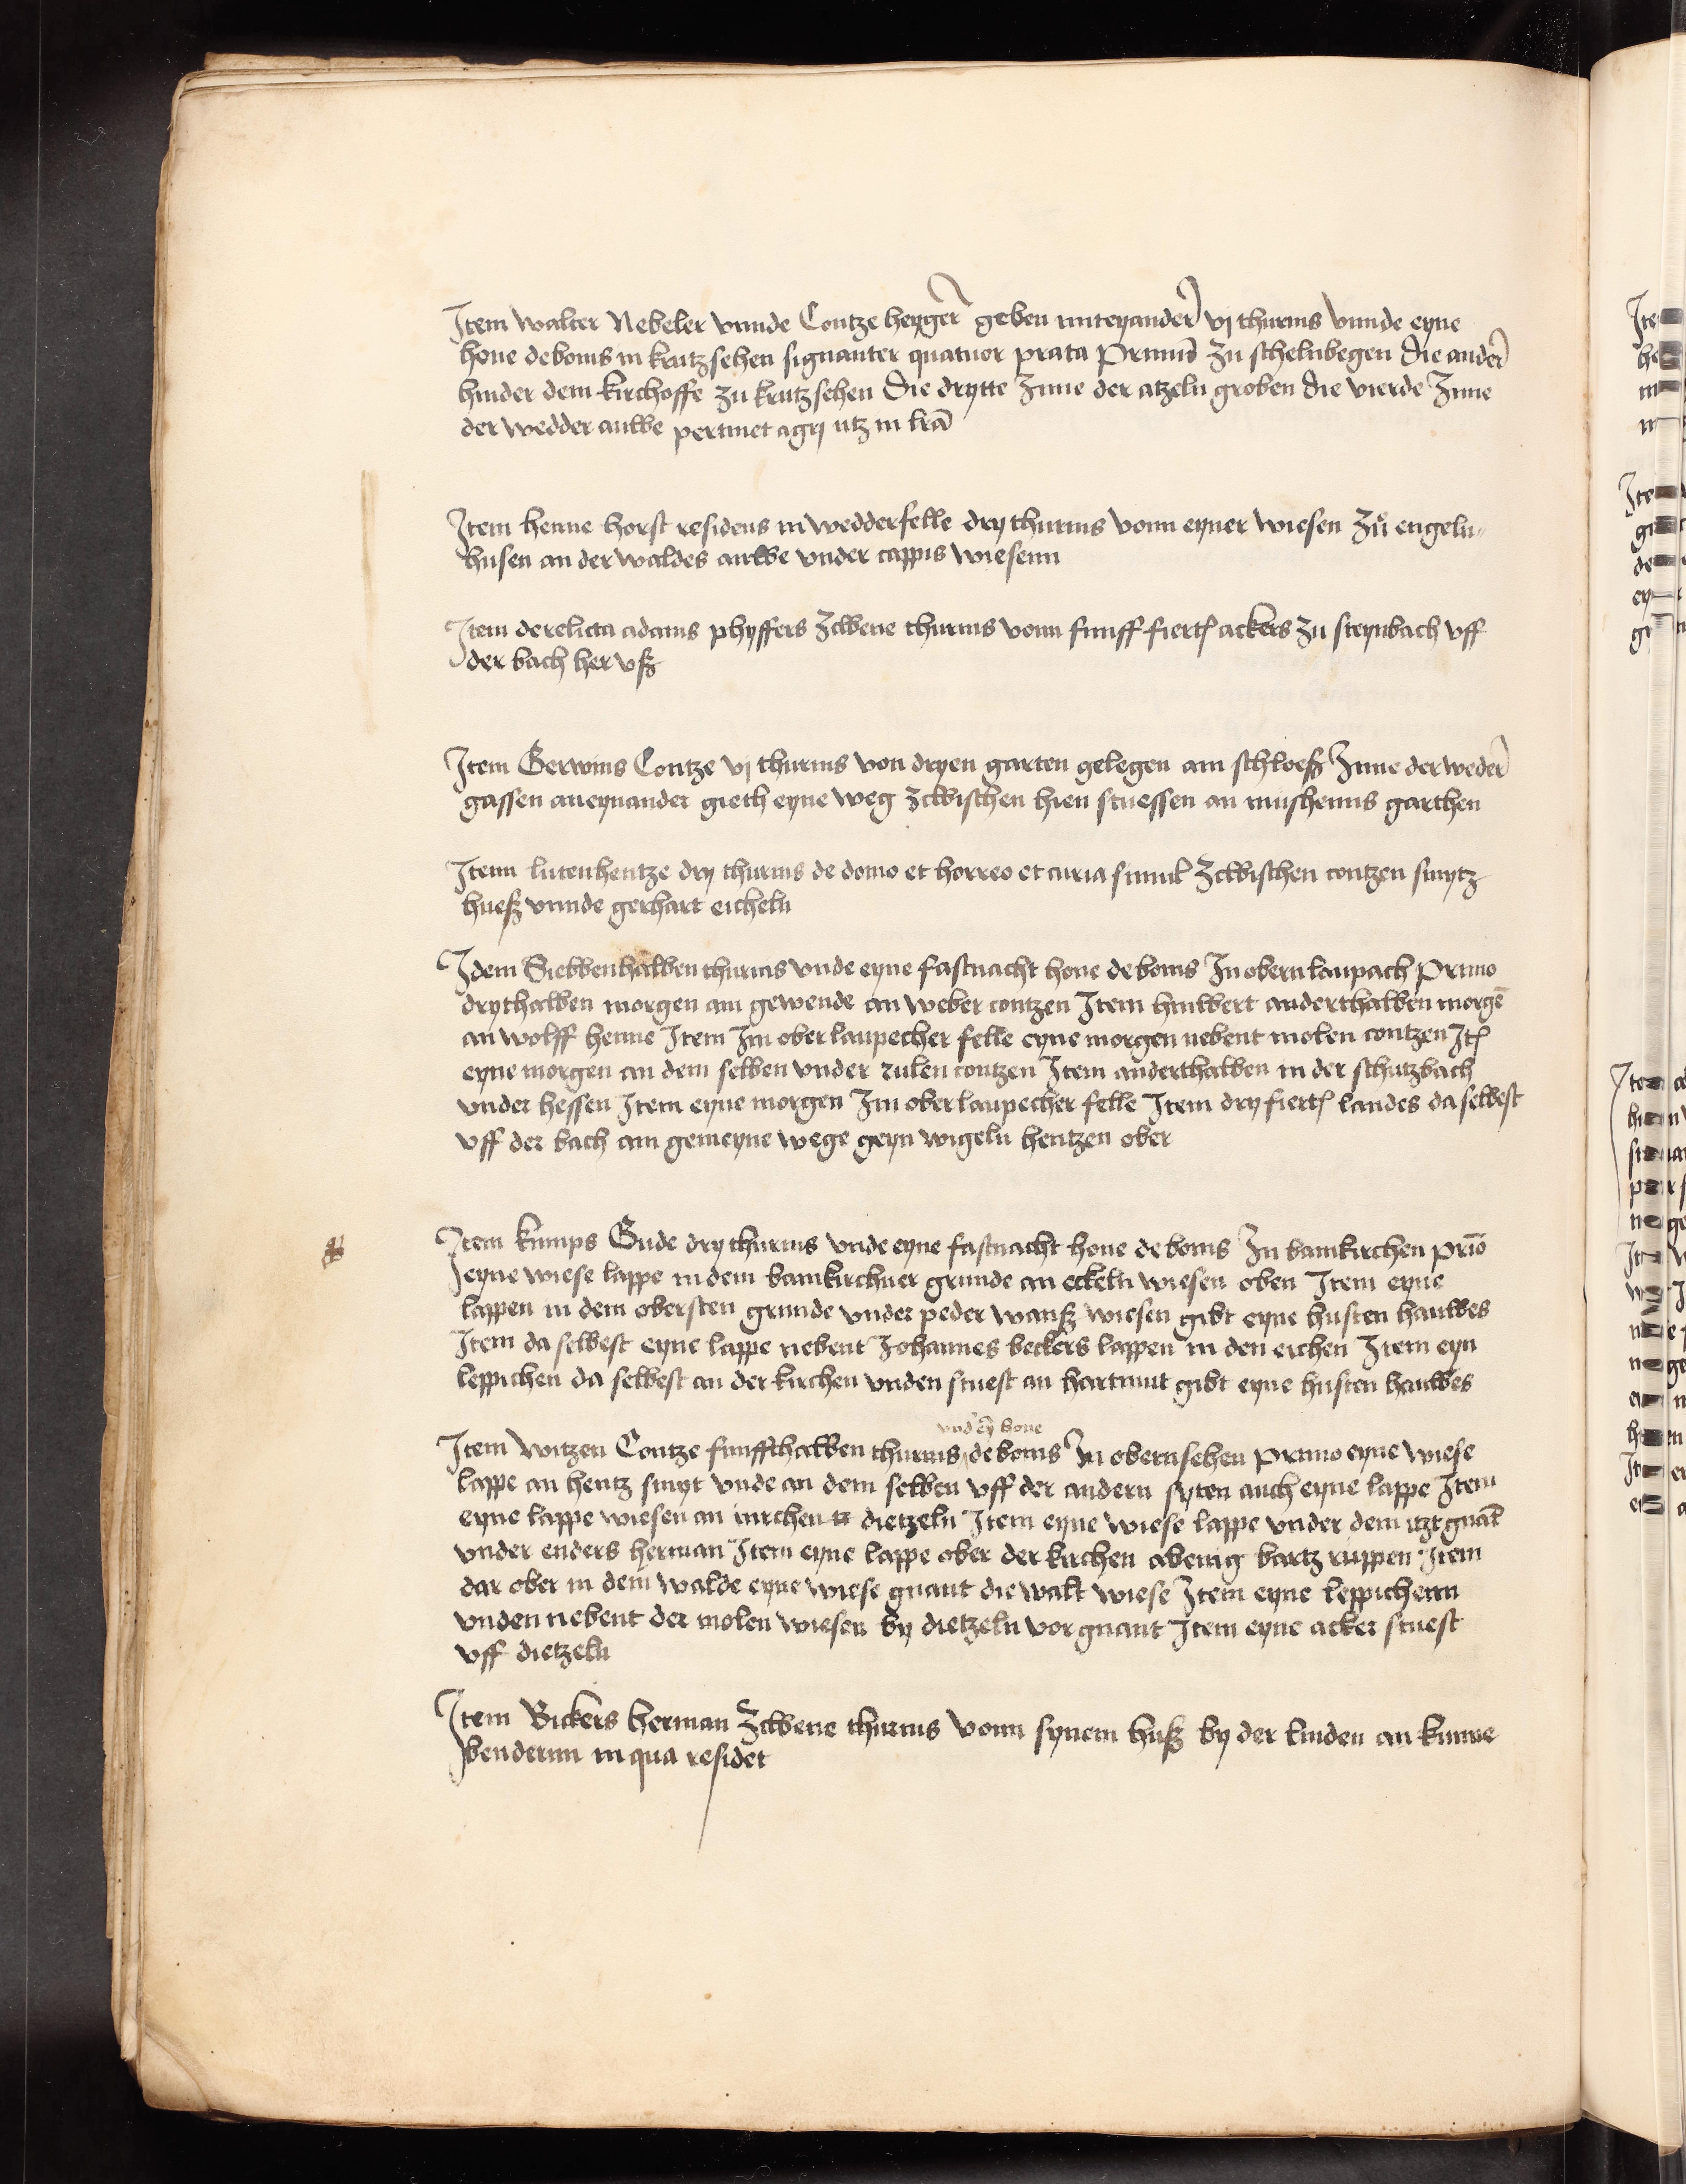 Item walter Nebeler vnnde Contze heyger geben miteynander vj thurnis vnnde eyne
hone de bonis in krutzsehen signanter quatuor prata Primũ zu schelnbegen die ander
hinder dem kirchoffe zu krutzsehen Die drytte Inne der atzeln groben die vierde Inne
der wedder auwe pertinet agrj utz in lrã
Item henne horst residens in wedderfelle dry thurnis vonn eyner wiesen zů engeln-
husen an der waldes auwe vnder cappis wiesenn
Item derelicta adams phyffers zwene thurnis vonn funff fiertl ackers zu steynbach vff
der bach her vß
Item Gerwins Contze vj thurnis von dryen garten gelegen am schloeß Inne der weder
gassen aneynander gieth eyne weg zwischen hien stuessen an mushenns garthen
Itenn lutenhentze dry thurnis de domo et horreo et curia simul zwischen contzen smytz
hueß vnnde gerhart eicheln
Idem Siebbenhalben thurnis vnde eyne fastnacht hone de bonis In obernlaupach Primo
drythalben morgen am gewende an weber contzen Item hinwert anderthalben morgē
an wolff henne Item Im ober laupecher felle eyne morgen nebent molen contzen Itē
eyne morgen an dem selben vnder rulen contzen Item anderthalben in der schutzbach
vnder hessen Item eyne morgen Im ober laupecher felle Item dry fiertl landes da selbest
vff der bach am gemeyne wege geyn wigeln hentzen ober
Item kumps Gude dry thurnis vnde eyne fastnacht hone de bonis In bamkirchen prĩo
eyne wiese lappe in dem bamkirchner grunde an eckeln wiesen oben Item eyne
lappen in dem obersten grunde vnder peder wanß wiesen gibt eyne husten hauwes
Item da selbest eyne lappe nebent Johannes beckers lappen in den eichen Item eyn
leppichen da selbest an der kirchen vnden stuest an hartmut gibt eyne husten hauwes
vnd ey hone
Item witzen Contze funffthalben thurnis de bonis In obernsehen primo eyne wiese
lappe an hentz smyt vnde an dem selben vff der andern syten auch eyne lappe Item
eyne lappe wiesen an dietzeln Item eyne wiese lappe vnder dem itzt gnãt
vnder enders herman Item eyne lappe ober der kirchen abenig bartz ruppen Item
dar ober in dem walde eyne wiese gnant die walt wiese Item eyne leppichenn
vnden nebent der molen wiesen by dietzeln vor gnant Item eyne acker stuest
vff dietzeln
Item Bickers herman zwene thurnis vonn synem huß by der linden an kunne
bendernn in qua residet